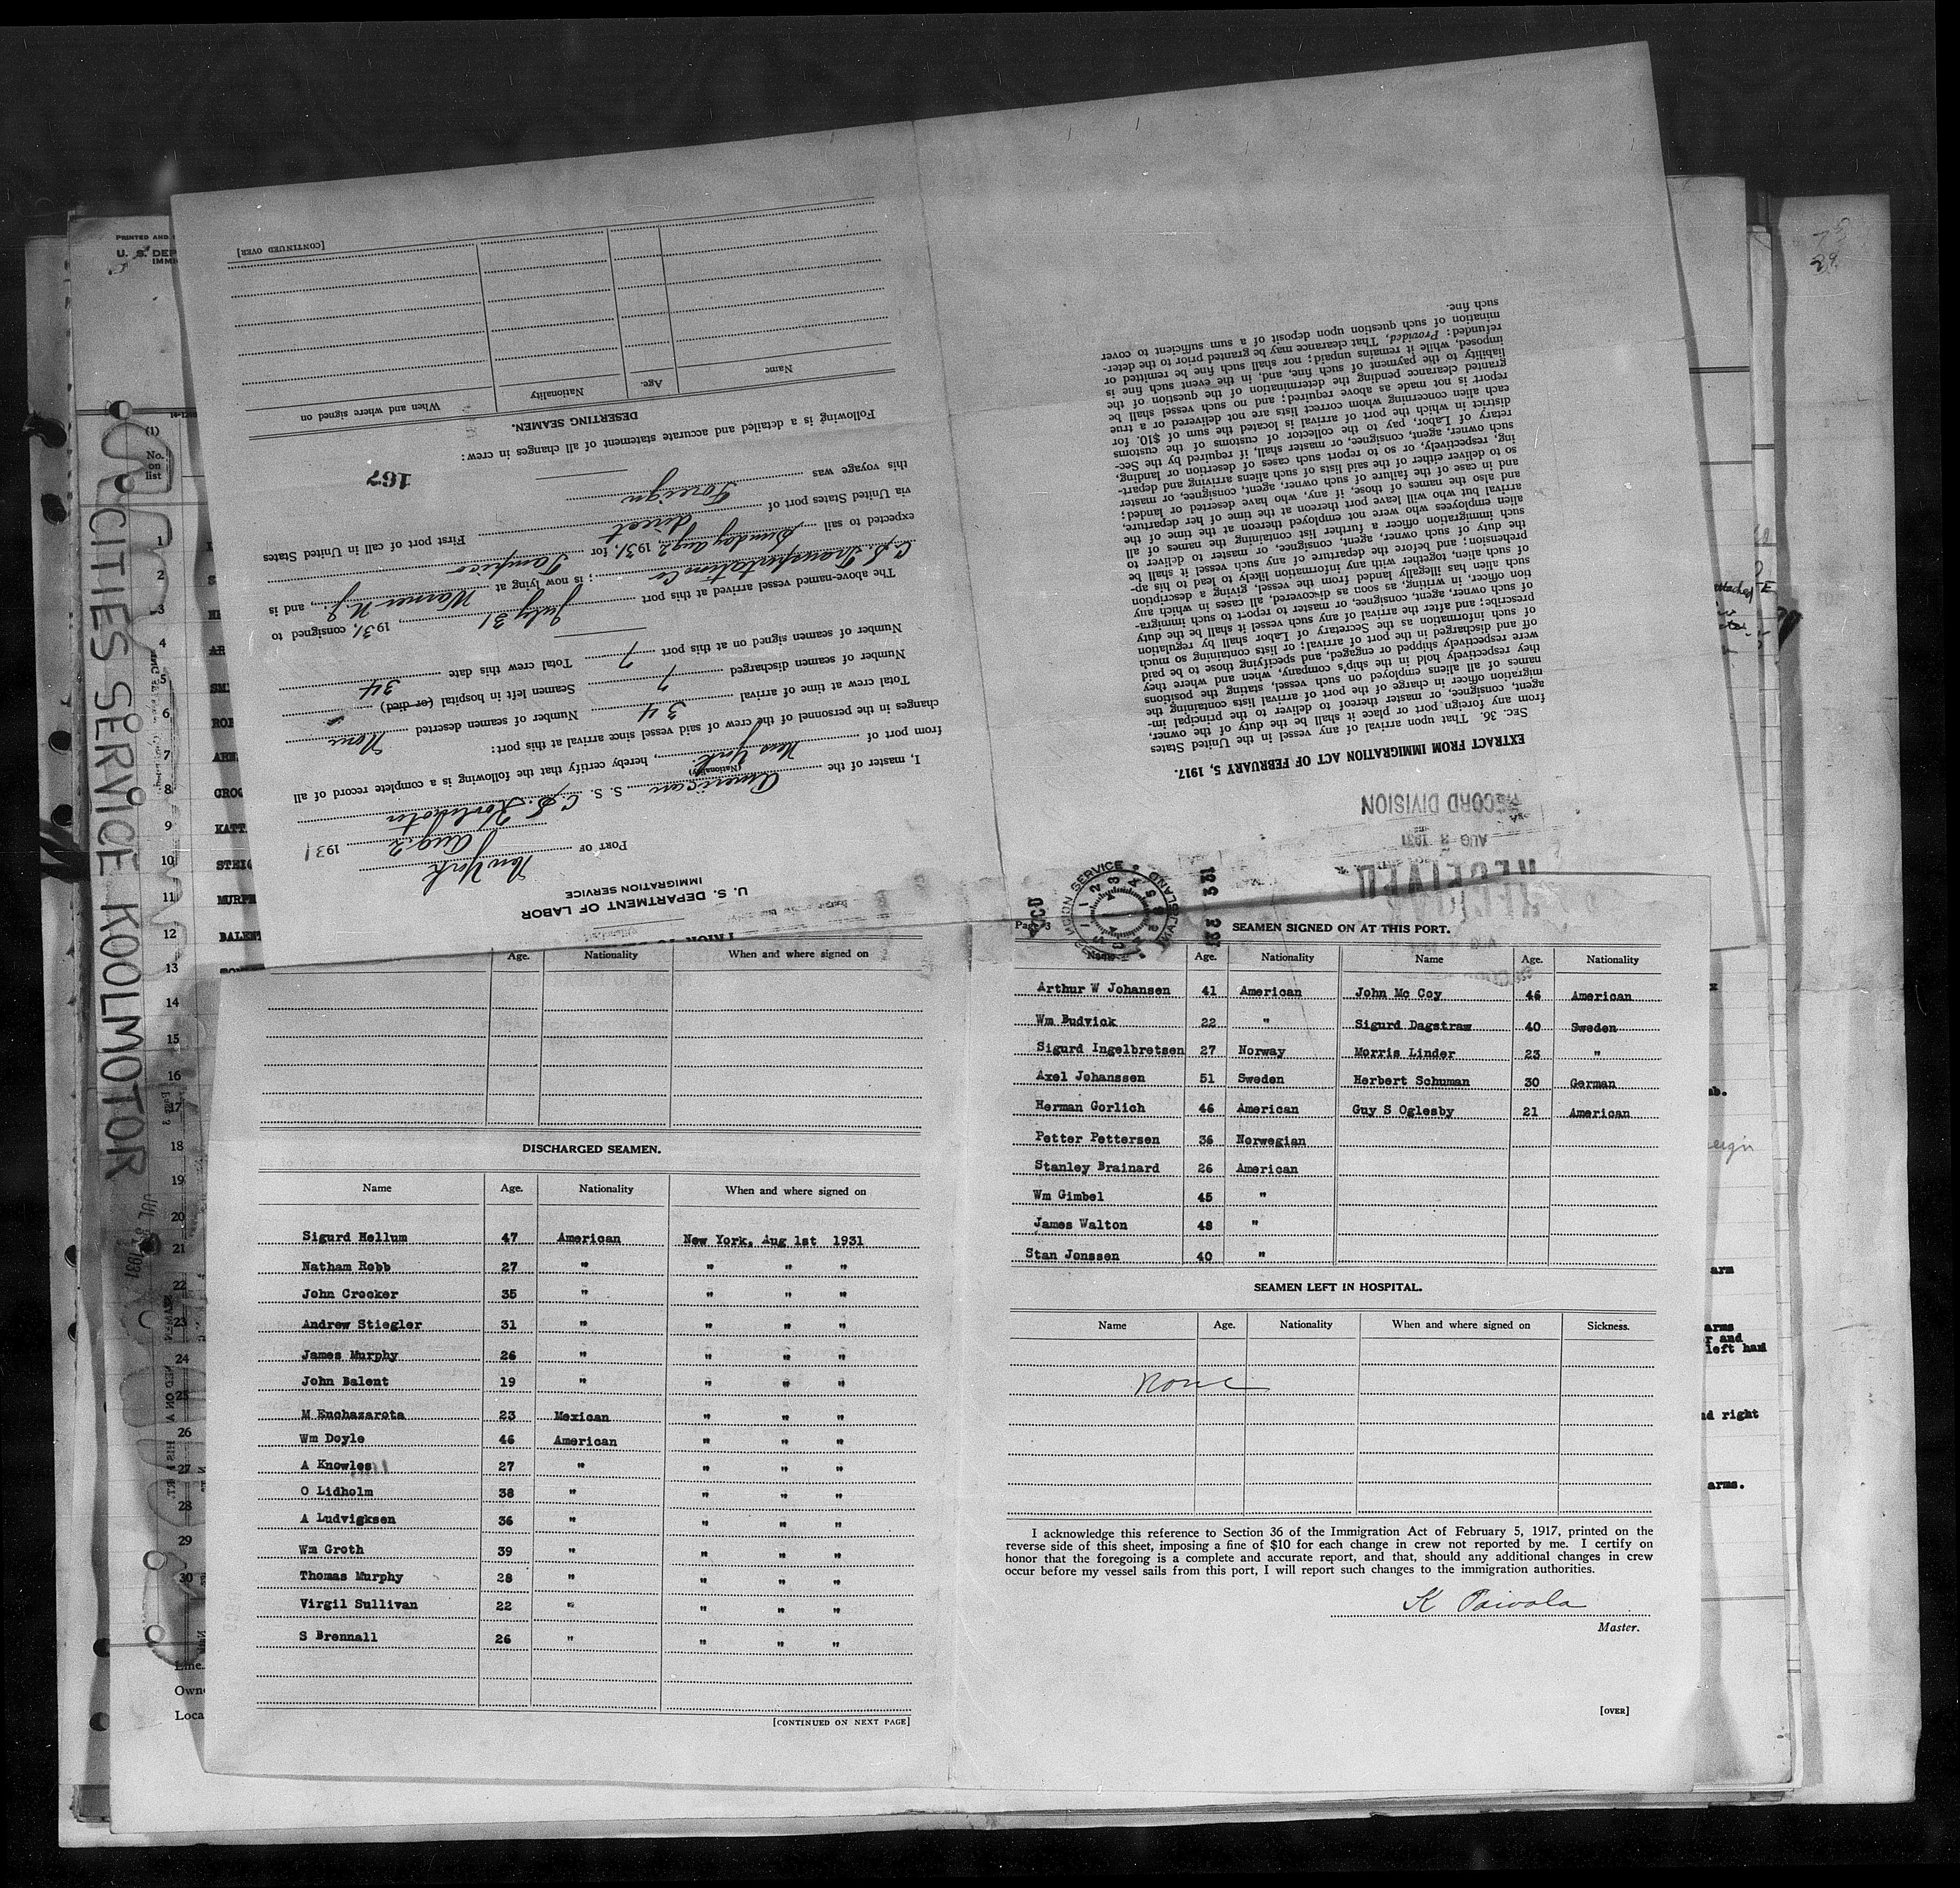 U. S. DEPARTMENT OF LABOR
IMMIGRATION SERVICE
PORT OF New York
Aug 2 1931
I, master of the American S. S. C.S.
(Nationality)
from port of New York, hereby certify that the following is a complete record of all
changes in the personnel of the crew of said vessel since arrival at this port:
Total crew at time of arrival 34 Number of seamen deserted None
Number of seamen discharged 7 Seamen left in hospital (or died)
Number of seamen signed on at this port 7 Total crew this date 34
The above-named vessel arrived at this port July 31, 1931, consigned to
C.S. Transportation Co; is now lying at Warner N.J., and is
expected to sail Sunday Aug 2, 1931, for Tampico
via United States port of direct First port of call in United States
this voyage was Foreign
167
Following is a detailed and accurate statement of all changes in crew:
DESERTING SEAMEN.
Name Age. Nationality When and where signed on
[CONTINUED OVER]
RECEIVED
AUG 2 1931
RECORD DIVISION
EXTRACT FROM IMMIGRATION ACT OF FEBRUARY 5, 1917.
SEC. 36. That upon arrival of any vessel in the United States
from any foreign port or place it shall be the duty of the owner,
agent, consignee, or master thereof to deliver to the principal im-
migration officer in charge of the port of arrival lists containing the
names of all aliens employed on such vessel, stating the positions
they respectively hold in the ship's company, when and where they
were respectively shipped or engaged, and specifying those to be paid
off and discharged in the port of arrival; or lists containing so much
of such information as the Secretary of Labor shall by regulation
prescribe; and after the arrival of any such vessel it shall be the duty
of such owner, agent, consignee, or master to report to such immigra-
tion officer, in writing, as soon as discovered, all cases in which any
such alien has illegally landed from the vessel, giving a description
of such alien, together with any information likely to lead to his ap-
prehension; and before the departure of any such vessel it shall be
the duty of such owner, agent, consignee, or master to deliver to
such immigration officer a further list containing the names of all
alien employees who were not employed thereon at the time of the
arrival but who will leave port thereon at the time of her departure,
and also the names of those, if any, who have deserted or landed;
and in case of the failure of such owner, agent, consignee, or master
so to deliver either of the said lists of such aliens arriving and depart-
ing, respectively, or so to report such cases of desertion or landing,
such owner, agent, consignee, or master shall, if required by the Sec-
retary of Labor, pay to the collector of customs of the customs
district in which the port of arrival is located the sum of $10. for
each alien concerning whom correct lists are not delivered or a true
report is not made as above required; and no such vessel shall be
granted clearance pending the determination of the question of the
liability to the payment of such fine, and, in the event such fine is
imposed, while it remains unpaid; nor shall such fine be remitted or
refunded: Provided, That clearance may be granted prior to the deter-
mination of such question upon deposit of a sum sufficient to cover
such fine.
CITIES SERVICE KOOLMOTOR
PRINTED AND
U. S. DEP
IMMI
(1)
No.
on
list
1
2
3
4
5
6
7
8
9
10
11
12
13
14
15
16
17
18
19
20
21
22
23
24
25
26
27
28
29
30
CROC
KATT
STEIG
MURPH
BALENT
Line
Owne
Loca
Age. Nationality When and where signed on
DISCHARGED SEAMEN.
Name Age. Nationality When and where signed on
Sigurd Hellum 47 American New York, Aug 1st 1931
Natham Robb 27 " " " "
John Crocker 35 " " " "
Andrew Stiegler 31 " " " "
James Murphy 26 " " " "
John Balent 19 " " " "
M Enchazarota 23 Mexican " " "
Wm Doyle 46 American " " "
A Knowles 27 " " " "
O Lidholm 38 " " " "
A Ludvigksen 36 " " " "
Wm Groth 39 " " " "
Thomas Murphy 28 " " " "
Virgil Sullivan 22 " " " "
S Brennall 26 " " " "
[CONTINUED ON NEXT PAGE]
Page 3
SEAMEN SIGNED ON AT THIS PORT.
Name Age. Nationality Name Age. Nationality
Arthur W Johansen 41 American John Mc Coy 46 American
Wm Budvick 22 " Sigurd Dagstram 40 Sweden
Sigurd Ingelbretsen 27 Norway Morris Linder 23 "
Axel Johanssen 51 Sweden Herbert Schuman 30 German
Herman Gorlich 46 American Guy S Oglesby 21 American
Petter Pettersen 36 Norwegian
Stanley Brainard 26 American
Wm Gimbel 45 "
James Walton 48 "
Stan Jonssen 40 "
SEAMEN LEFT IN HOSPITAL.
Name Age. Nationality When and where signed on Sickness.
None
I acknowledge this reference to Section 36 of the Immigration Act of February 5, 1917, printed on the
reverse side of this sheet, imposing a fine of $10 for each change in crew not reported by me. I certify on
honor that the foregoing is a complete and accurate report, and that, should any additional changes in crew
occur before my vessel sails from this port, I will report such changes to the immigration authorities.
K Paivola
Master.
[OVER]
arm
arms
r and
left hand
nd right
arms.